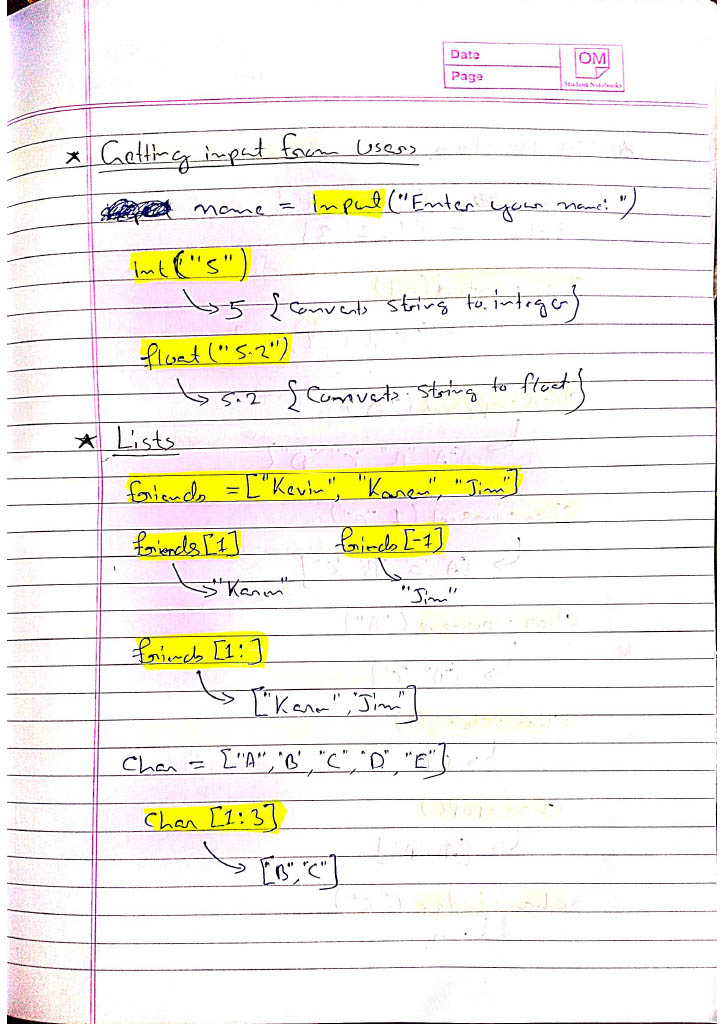 Date
Page
OM
Student Notebooks
* Getting input from Users
name = Input ("Enter your name: ")
Int ("5")
5 {Converts string to integer}
float ("5.2")
5.2 {Converts string to float}
* Lists
friends = ["Kevin", "Karen", "Jim"]
friends [1] friends [-1]
"Karen" "Jim"
friends [1:]
["Karen", "Jim"]
Char = ["A", "B", "C", "D", "E"]
Char [1:3]
["B", "C"]